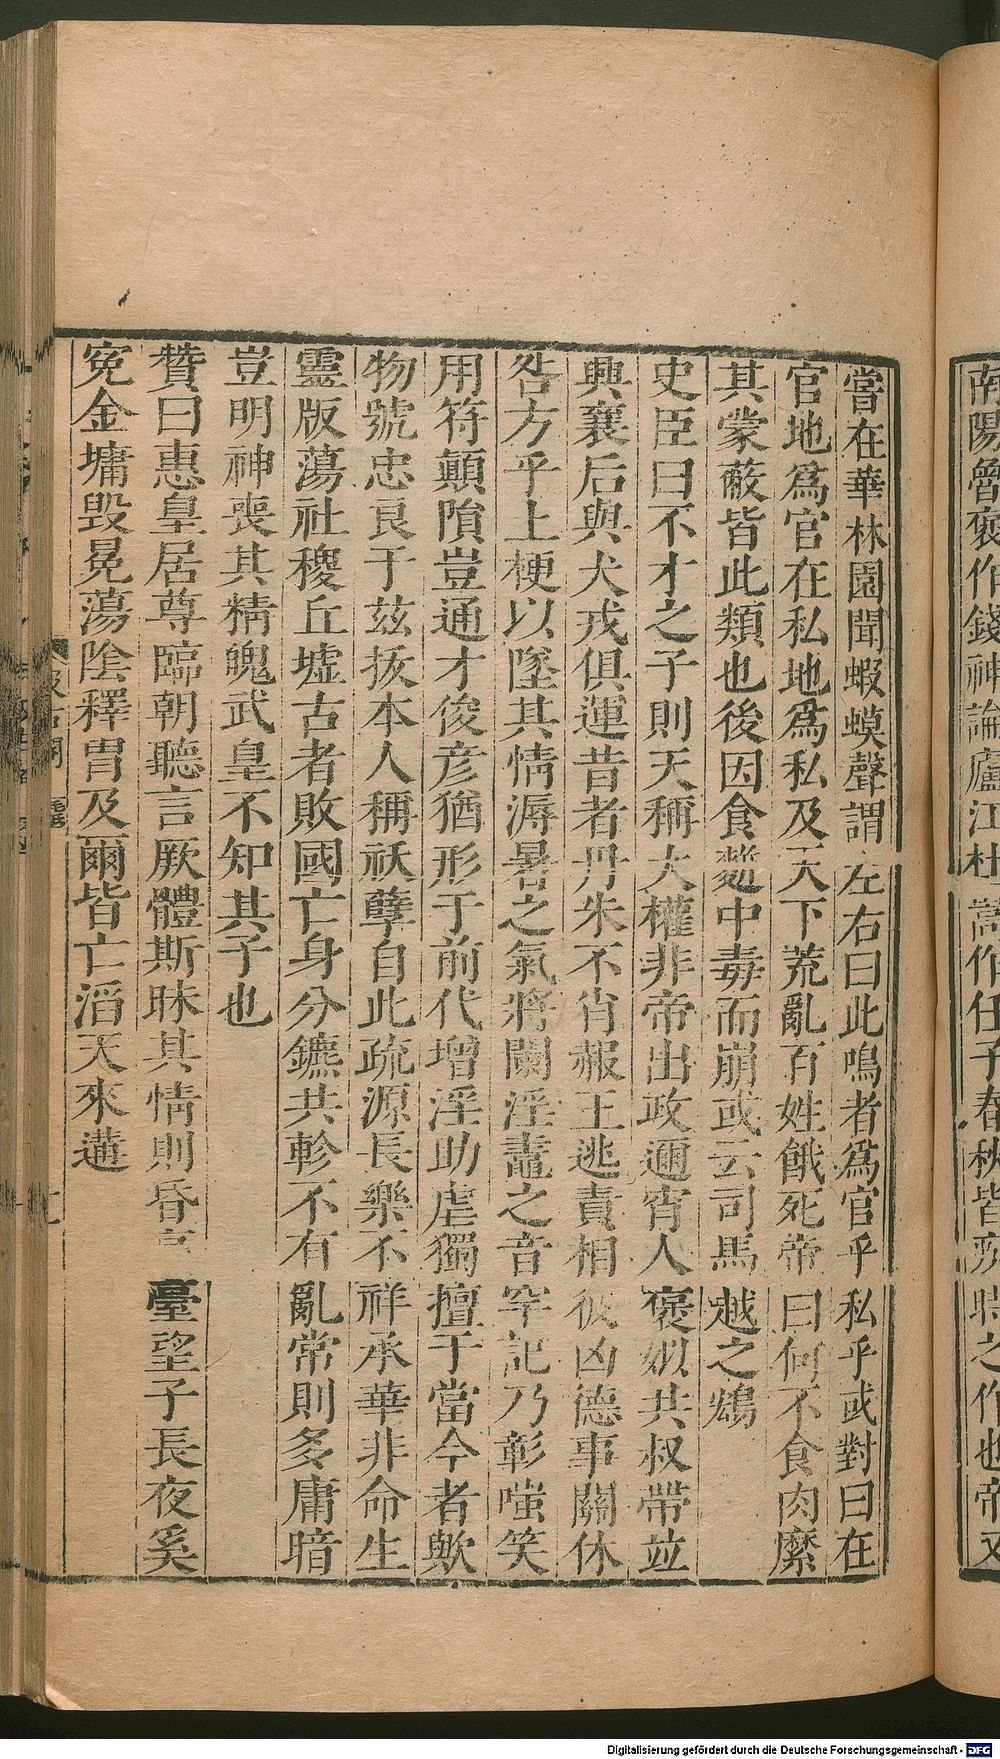 南陽魯褒作錢神論廬江杜嵩作任子春秋皆疾時之作也帝又
嘗在華林園聞蝦蟆聲謂左右曰此鳴者爲官乎私乎或對曰在
官地爲官在私地爲私及天下荒亂百姓餓死帝曰何不食肉糜
其蒙蔽皆此類也後因食䴵中毒而崩或云司馬越之鴆
史臣曰不才之子則天稱大權非帝出政邇宵人褒姒共叔帶竝
興襄后與犬戎俱運昔者丹朱不肖赧王逃責相彼凶德事關休
咎方乎土梗以墜其情溽暑之氣將闌淫鼃之音罕記乃彰嗤笑
用符顛隕豈通才俊彥猶形于前代增淫助虐獨擅于當今者歟
物號忠良于茲拔本人稱祅孽自此疏源長樂不祥承華非命生
靈版蕩社稷丘墟古者敗國亡身分鑣共軫不有亂常則多庸暗
豈明神喪其精魄武皇不知其子也
贊曰惠皇居尊臨朝聽言厥體斯昧其情則昏 臺望子長夜奚
寃金墉毀冕蕩陰釋胄及爾皆亡滔天來遘
七
Digitalisierung gefördert durch die Deutsche Forschungsgemeinschaft - DFG